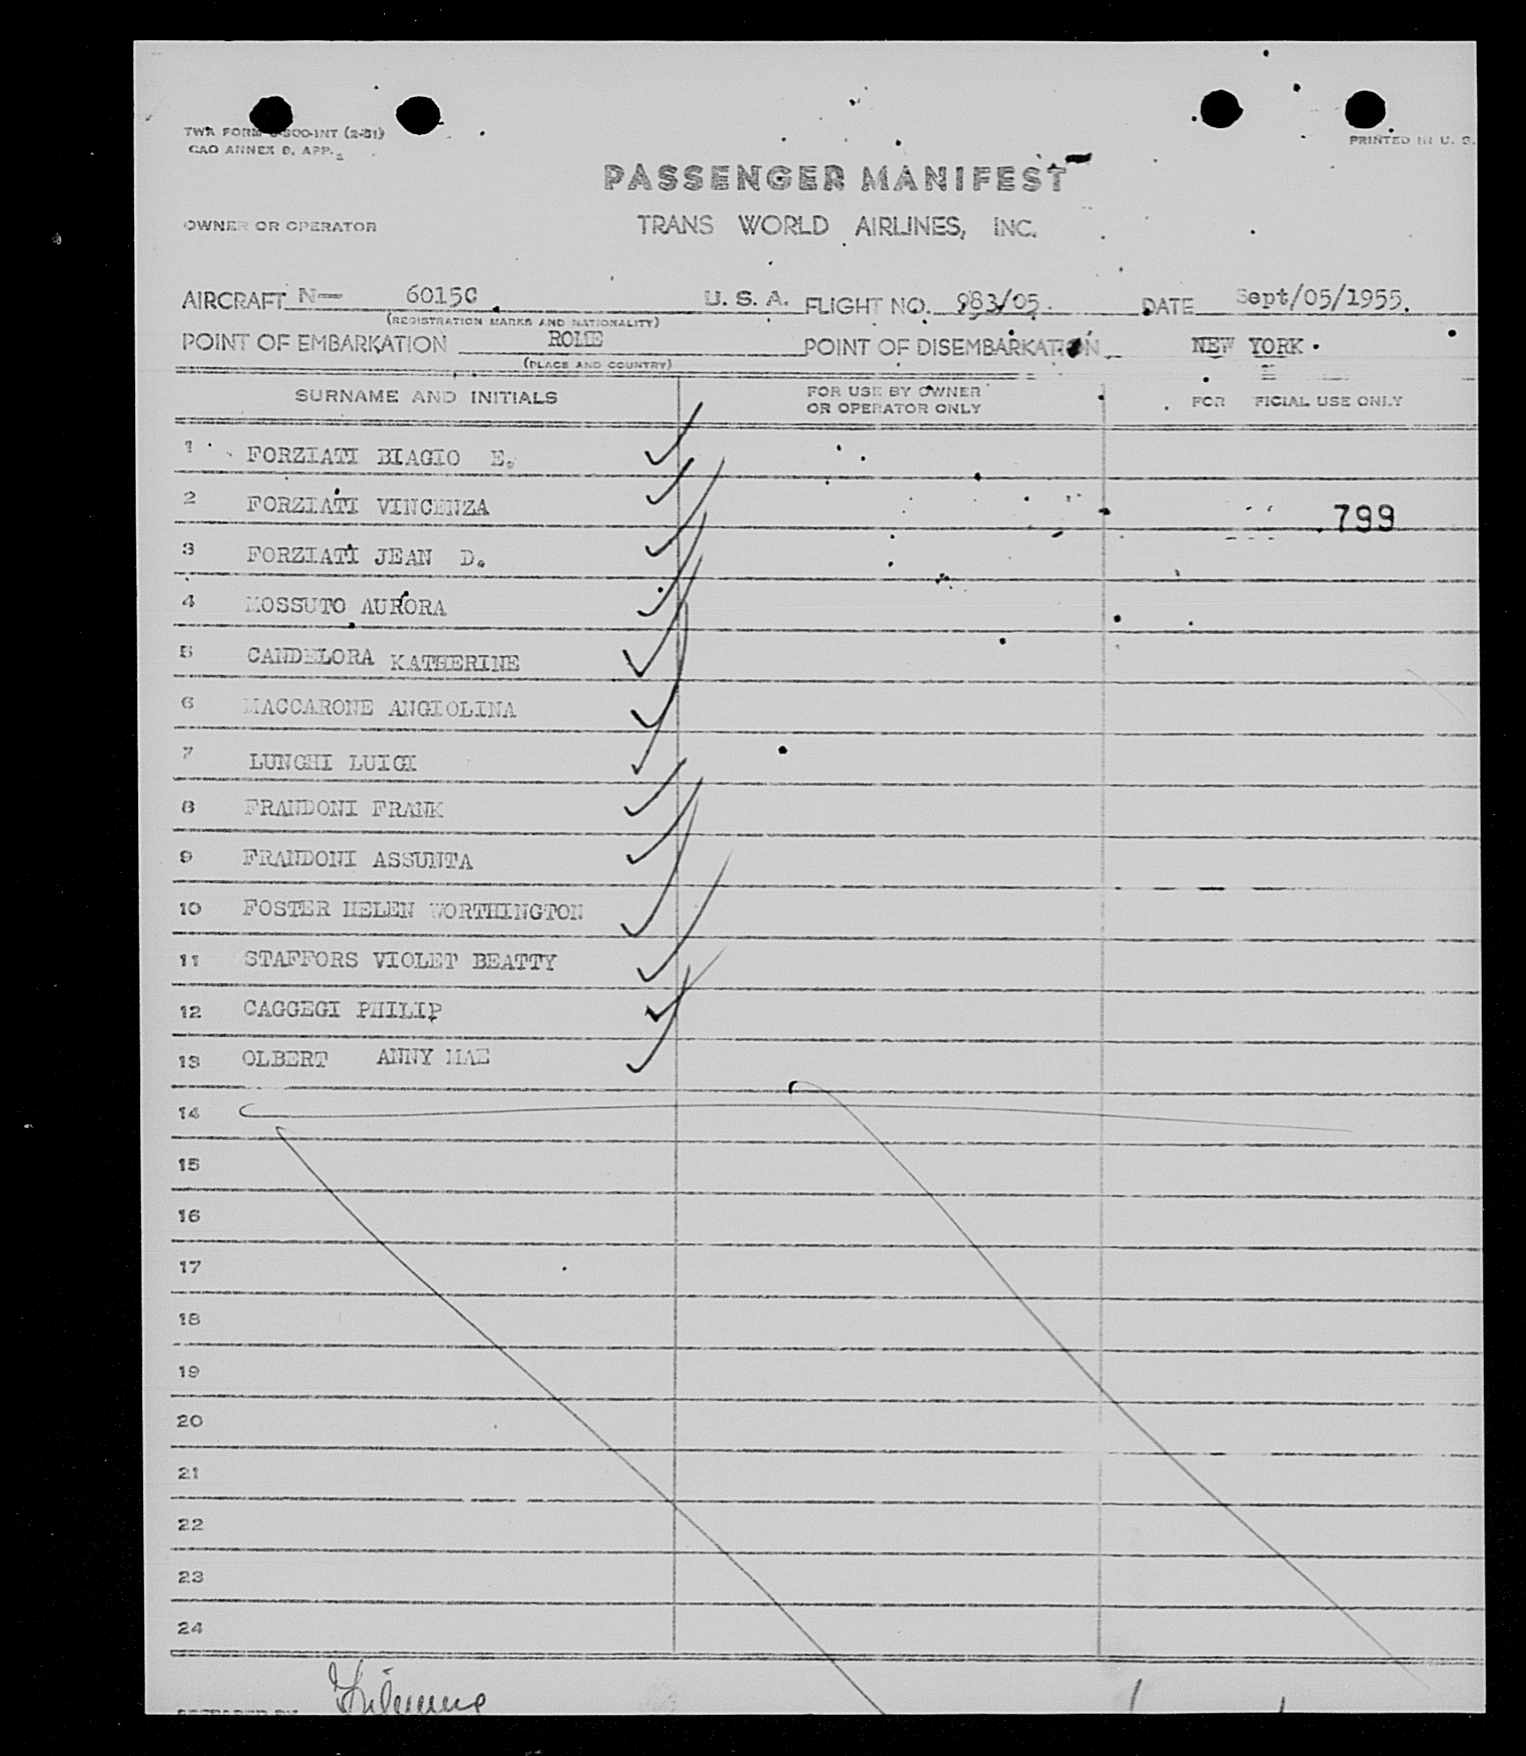 TWA FORM -300-INT (2-51)
CAO ANNEX 9, APP.
PRINTED IN U. S.
PASSENGER MANIFEST
OWNER OR OPERATOR TRANS WORLD AIRLINES, INC.
AIRCRAFT N— 6015C U. S. A. FLIGHT NO. 983/05. DATE Sept/05/1955.
(REGISTRATION MARKS AND NATIONALITY)
POINT OF EMBARKATION ROME POINT OF DISEMBARKATION NEW YORK
(PLACE AND COUNTRY)
SURNAME AND INITIALS FOR USE BY OWNER OR OPERATOR ONLY FOR FICIAL USE ONLY
1 FORZIATI BIAGIO E.
2 FORZIATI VINCENZA 799
3 FORZIATI JEAN D.
4 MOSSUTO AURORA
5 CANDELORA KATHERINE
6 MACCARONE ANGIOLINA
7 LUNGHI LUIGI
8 FRANDONI FRANK
9 FRANDONI ASSUNTA
10 FOSTER HELEN WORTHINGTON
11 STAFFORS VIOLET BEATTY
12 CAGGEGI PHILIP
13 OLBERT ANNY MAE
14
15
16
17
18
19
20
21
22
23
24